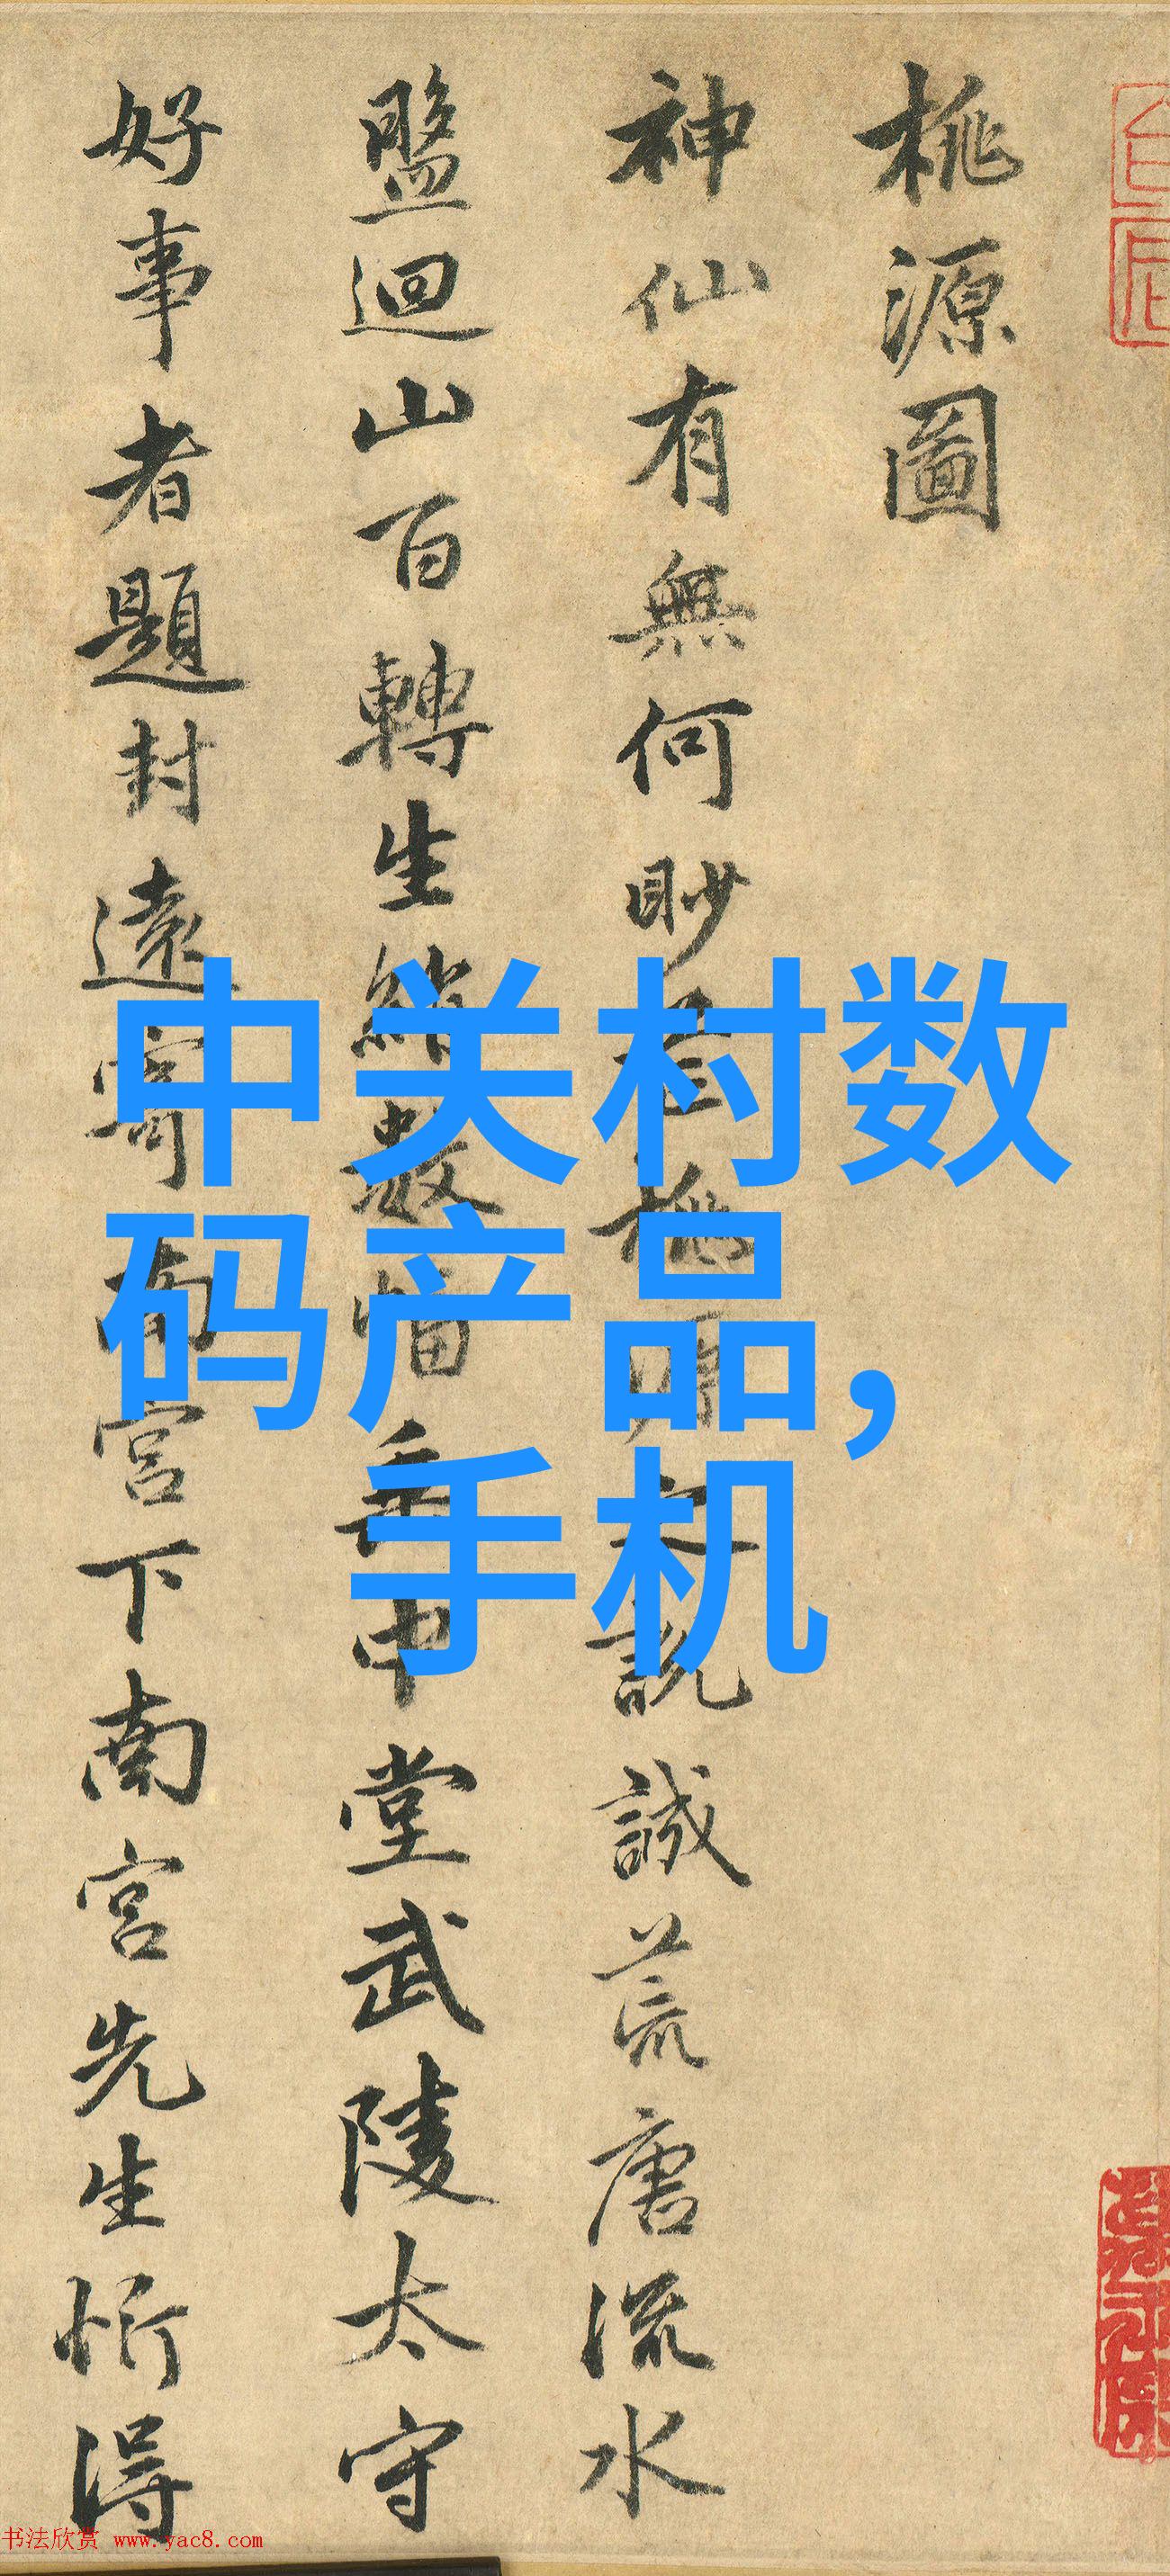 桃源圖
神仙有無何眇芒桃源之說誠荒唐流水
盤迴山百轉生綃數幅垂中堂武陵太守
好事者題封遠寄南宮下南宮先生忻得
中关村数
码产品，
手机
书法欣赏 www.yac8.com